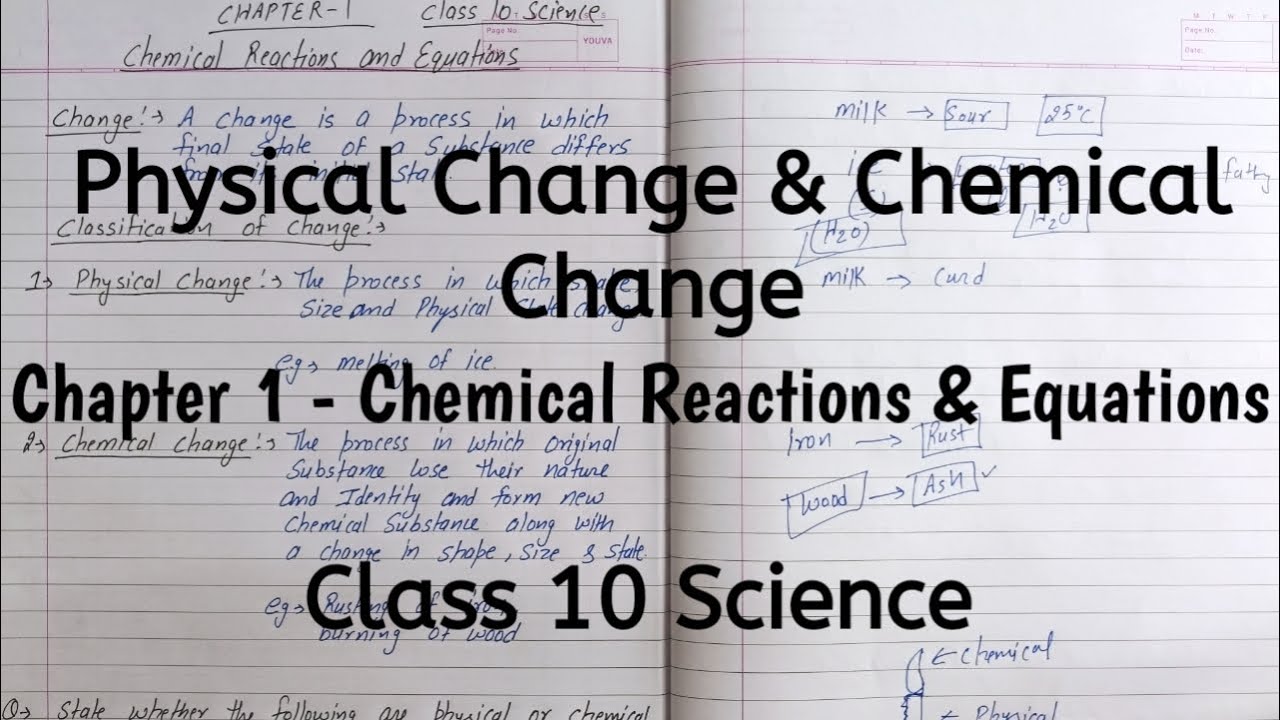 CHAPTER-1 Class 10 Science
Page No.
YOUVA
Chemical Reactions and Equations
Change:→ A change is a process in which
final state of a substance differs
Physical Change & Chemical
Classification of Change:→
Change
1→ Physical Change:→ The process in which
Size and Physical
eg→ melting of ice.
Chapter 1 - Chemical Reactions & Equations
2→ Chemical Change:→ The process in which original
Substance lose their nature
and Identity and form new
Chemical Substance along with
a change in shape, size & state.
Class 10 Science
eg→
burning of wood
Q→ State whether the following are physical or chemical
M T W T F
Page No.
Date:
milk → Sour 25°C
fatty
(H2O) H2O
milk → Curd
Iron → Rust
Wood → Ash ✓
← Chemical
← Physical